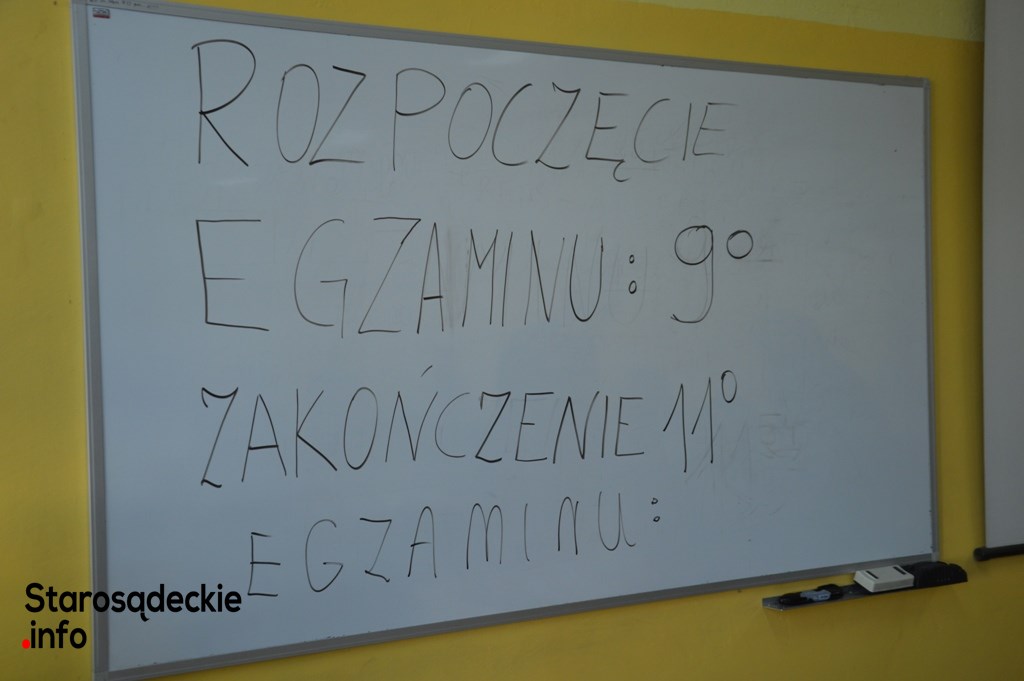 ROZPOCZĘCIE
EGZAMINU: 9°
ZAKOŃCZENIE 11°
EGZAMINU:
Starosądeckie
.info